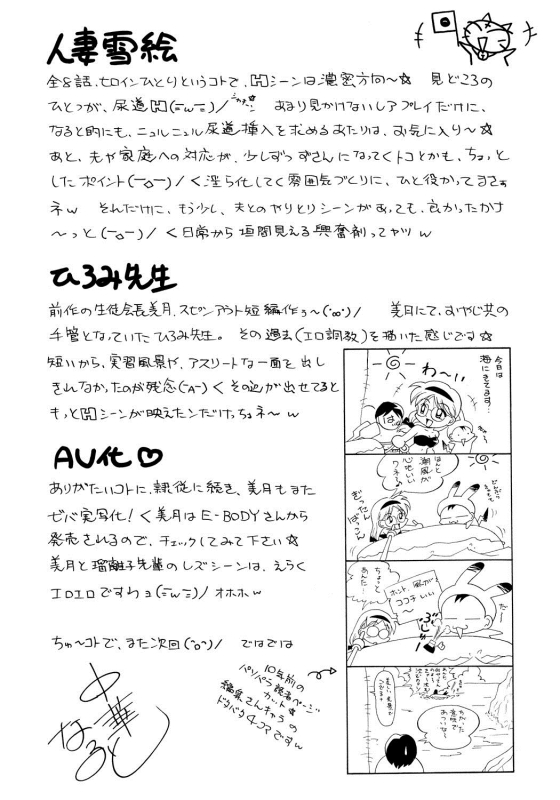 人妻雪絵
全8話、ヒロインひとりというコトで、Hシーンは濃密方向～☆ 見どころの
ひとつが、尿道H(=ω=)/ あまり見かけないレアプレイだけに、
なると的にも、ニュルニュル尿道挿入を求めるあたりは、お気に入り～☆
あと、夫や家庭への対応が、少しずつずさんになってくトコとかも、ちょっと
したポイント(ー。ー)/ く淫ら化してく雰囲気づくりに、ひと役かってますぁ
ネw それだけに、もう少し、夫とのやりとりシーンがあっても、良かったかナ
～っと(ー。ー)/ く日常から垣間見える興奮剤ってヤツw
ひろみ先生
前作の生徒会長美月、スピンアウト短編作ぅ～(°∞°)/ 美月にて、おやじ共の
手管となっていたひろみ先生。その過去(エロ調教)を描いた感じです☆
短いから、実習風景や、アスリートな一面を出し
きれなかったのが残念(ーAー) くその辺が出せてると
もっとHシーンが映えたンだけっちょネ～w
AV化♡
ありがたいコトに、隷従に続き、美月もまた
ゼバ実写化！く美月はE-BODYさんから
発売されるので、チェックしてみて下さい☆
美月と瑠璃子先輩のレズシーンは、えらく
エロエロですわョ(=ω=)/ オホホw
ちゅ～コトで、また次回(°o°)/ ではでは
中華なると
10年前の
パソパラ読者ページ
カット☆
編集さんキャラの
ドタバタ4コマですw
今日は
海にきてます…
わ～い
ほんと
潮風が
心地いい
ワネ～
ぎったん
ばっこん
ちょっと
あんた…
ホント、風が
ココチいい
～
だー
ちがった
意味で
あついな～